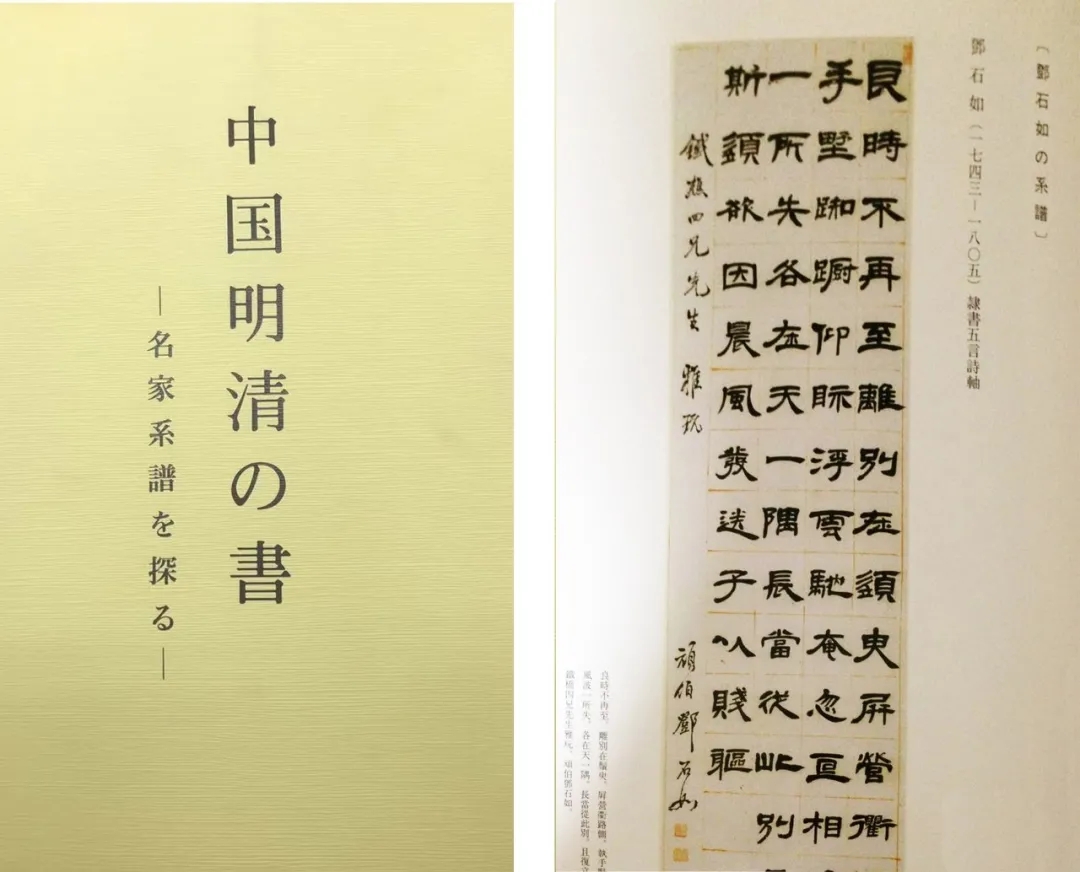 中国明清の書
―名家系譜を探る―
（鄧石如の系譜）
鄧石如（一七四三－一八〇五）隷書五言詩軸
良時不再至離別在須臾屏營衢
手墅踟蹰仰眎浮雲馳奄忽亙相
一所失各在天一隅長當從此別
斯須欲因晨風發送子以賤軀
鐵橋四兄先生 雅玩 頑伯鄧石如
良時不再至。離別在須臾。屏營衢路側。執手
風波一所失。各在天一隅。長當從此別。且復
鐵橋四兄先生雅玩。頑伯鄧石如。